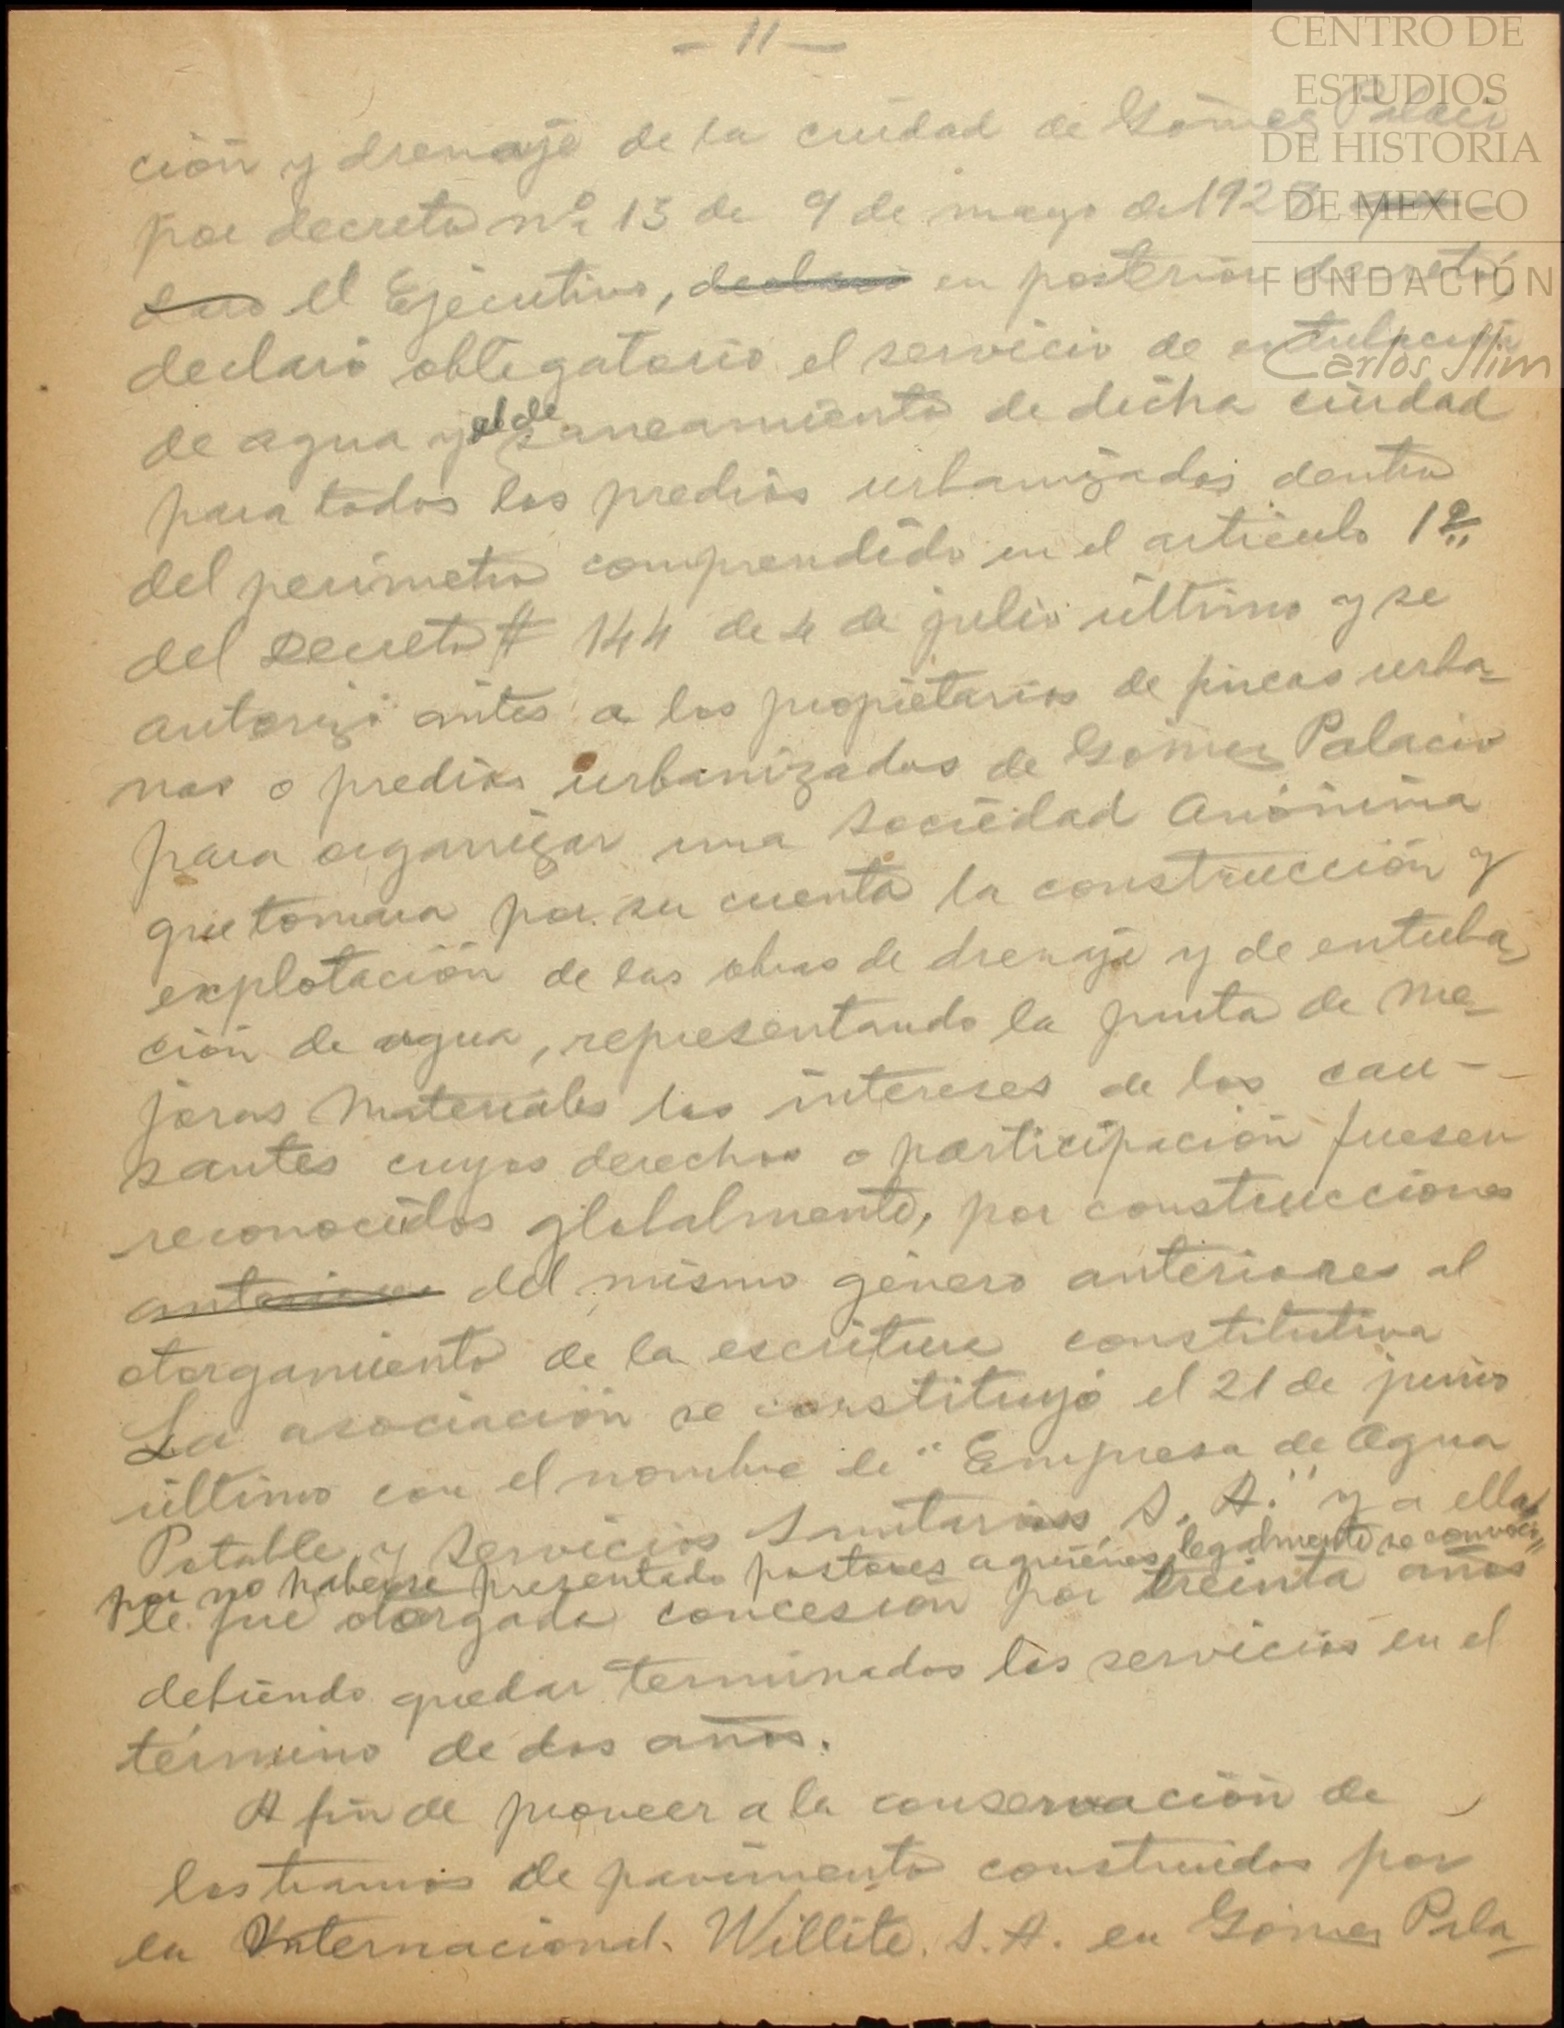 - 11 -
CENTRO DE
ESTUDIOS
DE HISTORIA
DE MEXICO
FUNDACIÓN
Carlos Slim
ción y drenaje de la ciudad de Gómez Palacio
por decreto nº 13 de 9 de mayo de 192
el Ejecutivo, declaró en posterior decreto,
declaró obligatorio el servicio de entubación
de agua y el de saneamiento de dicha ciudad
para todos los predios urbanizados dentro
del perímetro comprendido en el artículo 1º
del Decreto # 144 de 4 de julio último y se
autorizó antes a los propietarios de fincas urba-
nas o predios urbanizados de Gómez Palacio
para organizar una Sociedad Anónima
que tomara por su cuenta la construcción y
explotación de las obras de drenaje y de entuba-
ción de agua, representando la Junta de Me-
joras Materiales los intereses de los cau-
santes cuyos derechos o participación fuesen
reconocidos globalmente, por construcciones
anteriores del mismo género anteriores al
otorgamiento de la escritura constitutiva
La asociación se constituyó el 21 de junio
último con el nombre de "Empresa de Agua
Potable y Servicios Sanitarios S. A." y a ella
por no haberse presentado postores a quienes legalmente se convocó,
le fue otorgada concesión por treinta años
debiendo quedar terminados los servicios en el
término de dos años.
A fin de proveer a la conservación de
los tramos de pavimento construidos por
la Internacional Willite. S. A. en Gómez Pala-